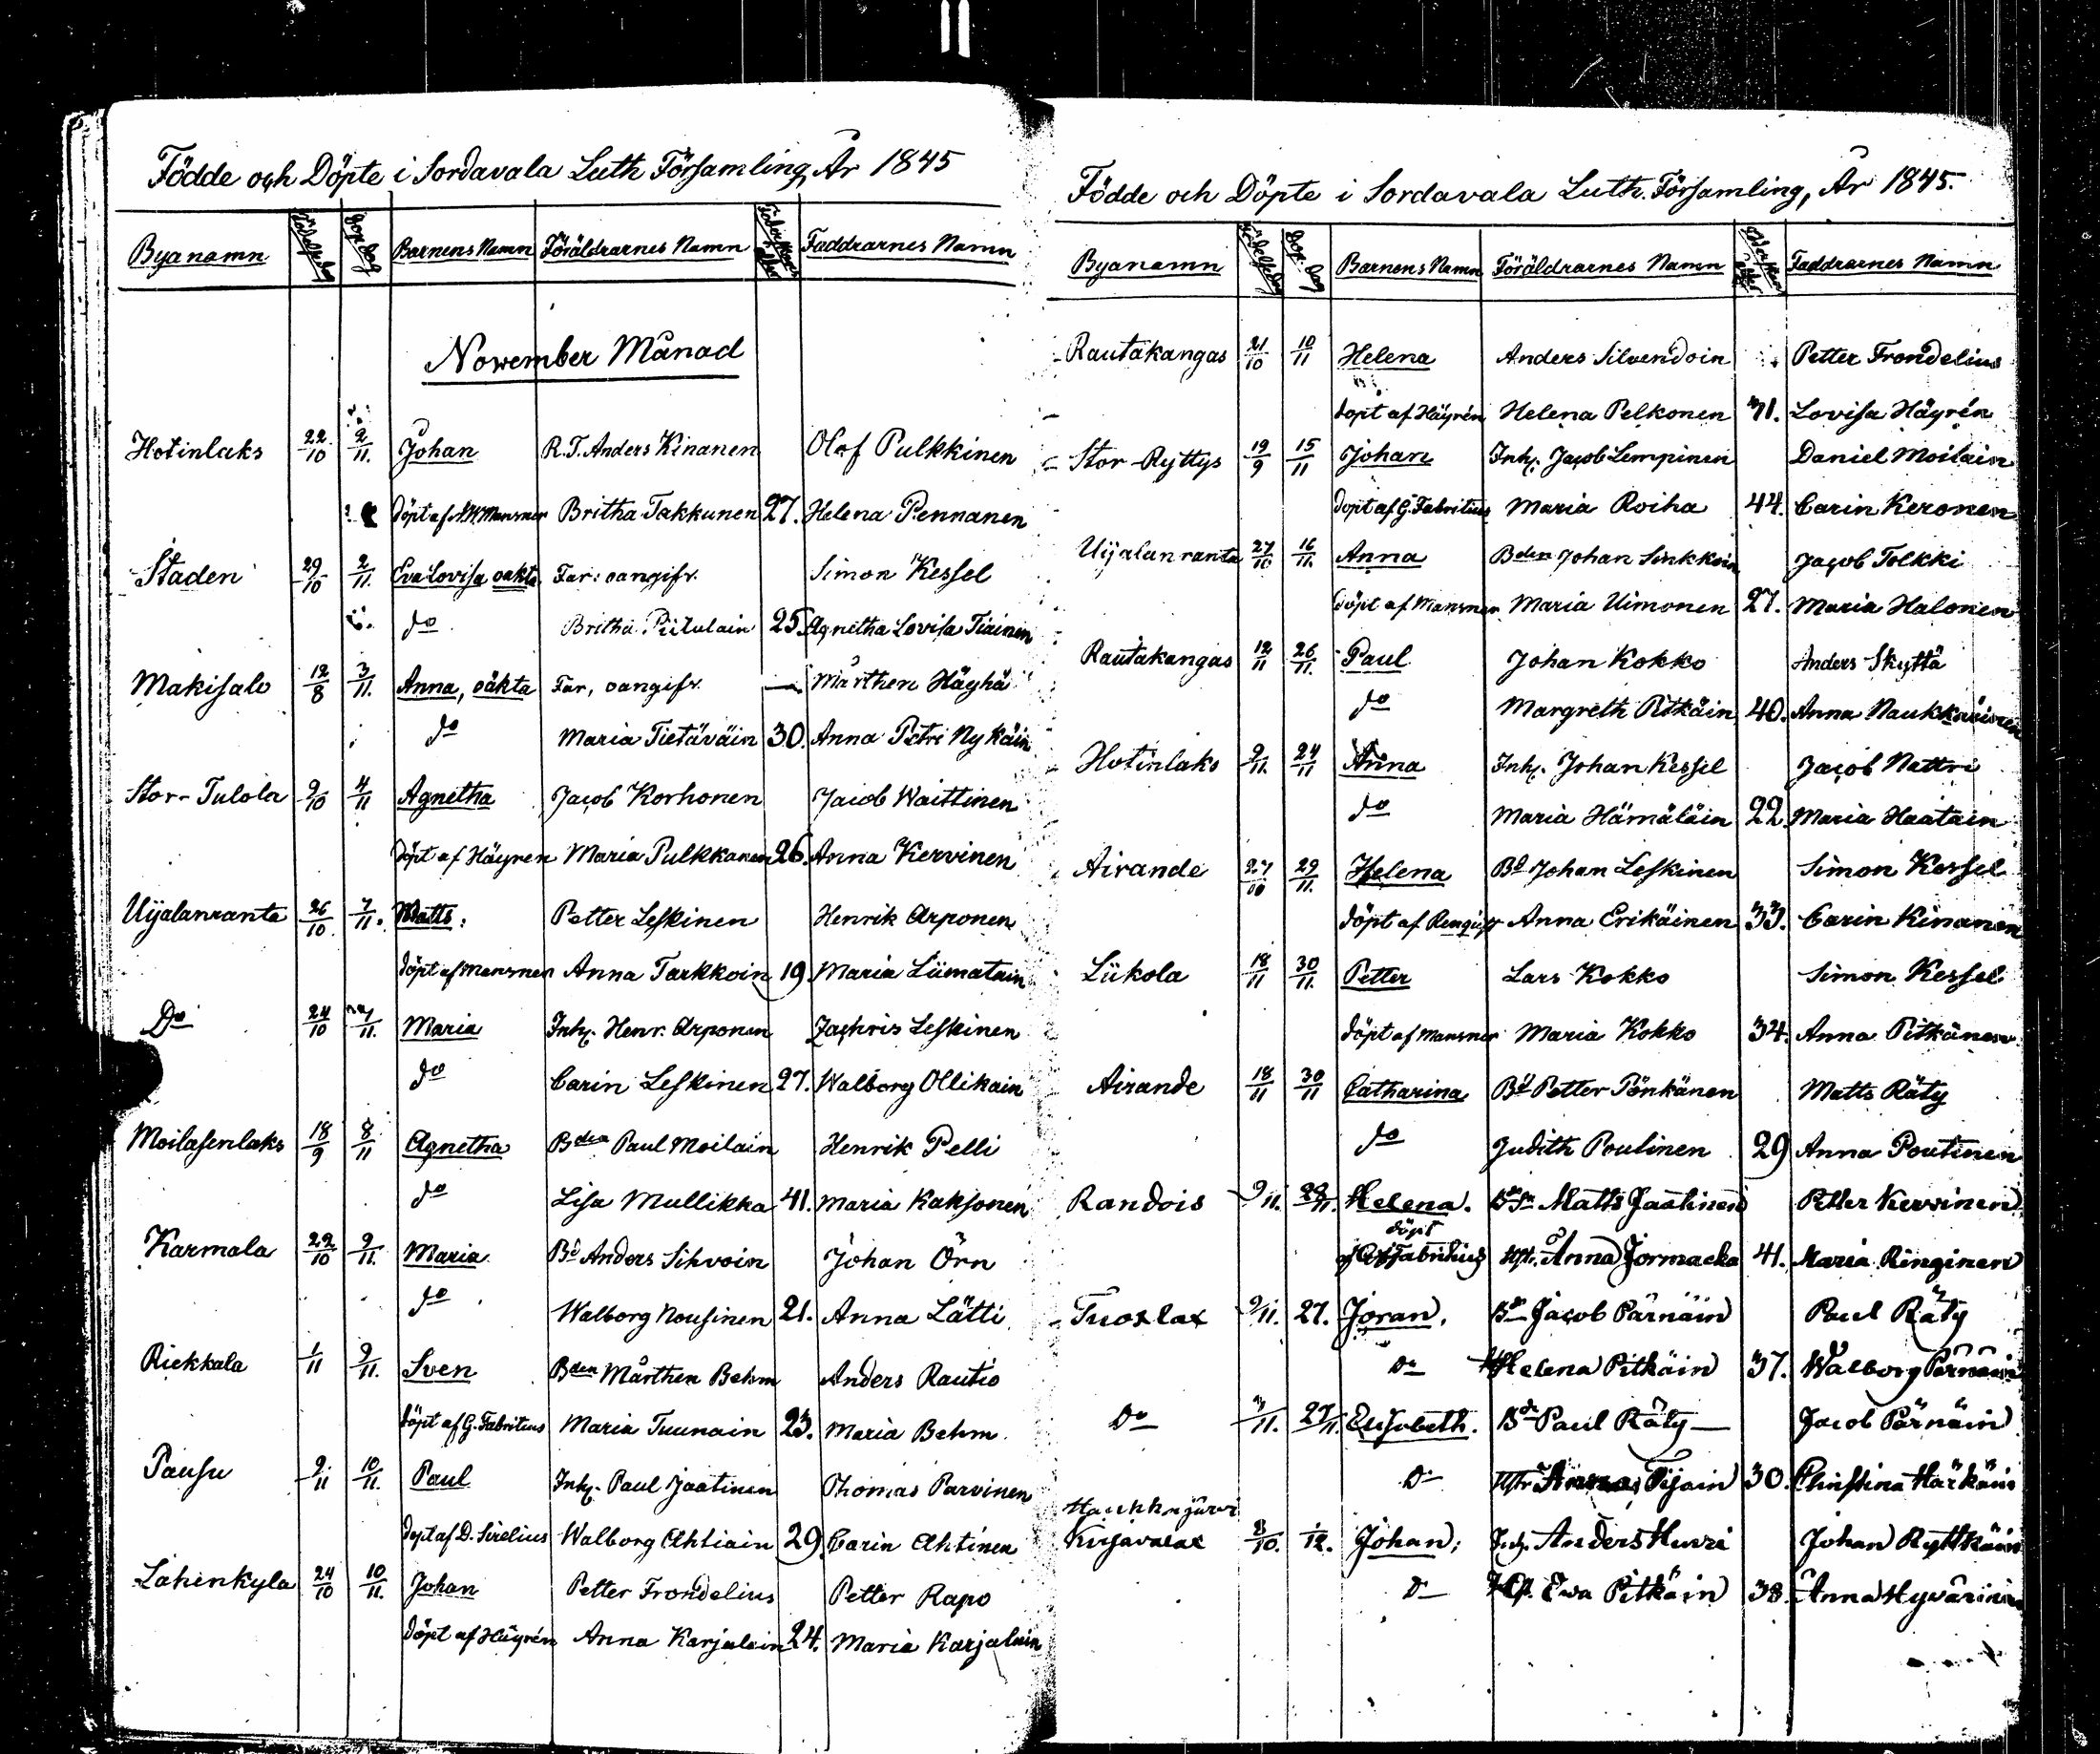 Födde och Döpte i Sordavala Luth Församling, År 1845
Byanamn Födelsedag Dop dag Barnens Namn Föräldrarnes Namn Faddrarnes Namn
November Månad
Hotinlaks 22/10 2/11. Johan R.T. Anders Kinanen Olof Pulkkinen
döpt af Mansner Britha Takkunen 27. Helena Pennanen
Staden 29/10 2/11. Eva Lovisa oäkta Far: oangifv. Simon Kessel
do Britha Piitulain 25. Agnetha Lovisa Tiainen
Makisalo 12/8 3/11. Anna, oäkta Far, oangifv. — Mårthen Häyhä
do Maria Tietäväin 30. Anna Petri Nykäin
Stor-Tulola 9/10 4/11 Agnetha Jacob Korhonen Jacob Waittinen
döpt af Häyren Maria Pulkkanen 26. Anna Kervinen
Uijalanranta 26/10 7/11. Matts: Petter Leskinen Henrik Arponen
döpt af Mansner Anna Tarkkoin 19 Maria Liimatain
Do 24/10 7/11. Maria Inh. Henr. Arponen Zachris Leskinen
do Carin Leskinen 27. Walborg Ollikain
Moilasenlaks 18/9 8/11 Agnetha Bden Paul Moilain Henrik Pelli
do Lisa Mullikka 41. Maria Kaksonen
Karmala 22/10 9/11. Maria Bd Anders Sihvoin Johan Örn
do Walborg Nousinen 21. Anna Lätti
Riekkala 1/11 9/11. Sven Bden Mårthen Behm Anders Rautio
döpt af G. Fabritius Maria Tuunain 23. Maria Behm
Pausu 9/11 10/11. Paul Inh. Paul Jaatinen Thomas Parvinen
döpt af D. Sirelius Walborg Ahtiain 29. Carin Ahtinen
Lahenkyla 24/10 10/11. Johan Petter Frondelius Petter Rapo
döpt af Häyrén Anna Karjalain 24. Maria Karjalain
Födde och Döpte i Sordavala Luth. Församling, År 1845.
Byanamn Födelsedag Dop-dag Barnens Namn Föräldrarnes Namn Faddrarnes Namn
Rautakangas 21/10 10/11 Helena Anders Silvendoin Petter Frondelius
döpt af Häyrén Helena Pelkonen 41. Lovisa Häyrén
Stor-Ryttys 19/9 15/11 Johan Inh. Jacob Lempinen Daniel Moilain
döpt af G. Fabritius Maria Roiha 44. Carin Keronen
Uijalanranta 27/10 16/11. Anna Bden Johan Sinkkoin Jacob Tolkki
döpt af Mansner Maria Uimonen 27. Maria Halonen
Rautakangas 12/11 26/11. Paul Johan Kokko Anders Skyttä
do Margreth Pitkäin 40. Anna Naukkarinen
Hotinlaks 9/11. 24/11 Anna Inh. Johan Kessel Jacob Nattri
do Maria Hämäläin 22. Maria Haatain
Airande 27/10 29/11. Helena Bd Johan Leskinen Simon Kessel
döpt af Anna Erikäinen 33. Carin Kinanen
Liikola 18/11 30/11. Petter Lars Kokko Simon Kessel
döpt af Mansner Maria Kokko 34. Anna Pitkänen
Airande 18/11 30/11 Catharina Bd Petter Pönkänen Matts Räty
do Judith Poutinen 29 Anna Poutinen
Randois 9/11. 28/11. Helena. Matts Jaatinen Petter Kervinen
döpt
af Fabritius Anna Jormacka 41. Maria Ringinen
Tuoslax 9/11. 27. Joran. Bd Jacob Pärnäin Paul Räty
Do Helena Pitkäin 37. Walborg Pärnäin
Do 3/11. 27/11. Elisabeth. Bd Paul Räty — Jacob Pärnäin
Do Anna 30. Christina Härkäin
Haukkajärvi
Kirjavalax 8/10. 1/12. Johan; Inh. Anders Hurri Johan Ryttkäin
Do Ewa Pitkäin 38. Anna Hyvärinen